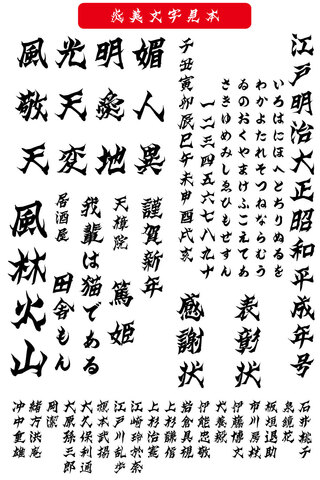 美文字見本
江戸明治大正昭和平成年号
いろはにほへとちりぬるを
わかよたれそつねならむう
ゐのおくやまけふこえてあ
さきゆめみしゑひもせすん
一二三四五六七八九十
子丑寅卯辰巳午未申酉戌亥
風光明媚
敬天愛人
天変地異
表彰状
感謝状
謹賀新年
天璋院 篤姫
我輩は猫である
居酒屋 田舎もん
風林火山
石井桃子
泉鏡花
板垣退助
市川房枝
伊藤博文
犬養毅
伊能忠敬
岩倉具視
上杉謙信
上杉治憲
江崎玲於奈
江戸川乱歩
榎本武揚
大久保利通
大原孫三郎
岡潔
緒方洪庵
沖中重雄